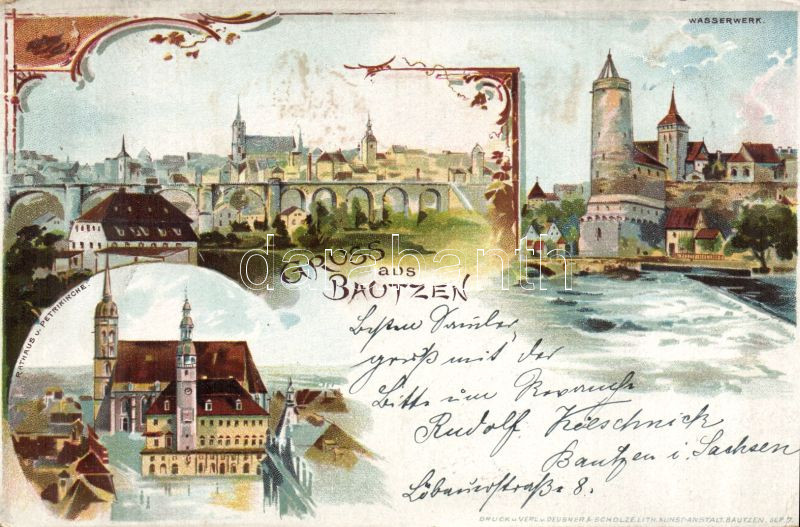 WASSERWERK.
GRUSS
aus
BAUTZEN
darabanth
RATHAUS U. PETRIKIRCHE.
Besten
grüßt mit der
Bitte um Revanche
Rudolf Kieschnick
Bautzen i. Sachsen
Löbauerstraße 8.
DRUCK u. VERL. v. DEUSNER & SCHOLZE, LITH. KUNST-ANSTALT, BAUTZEN.